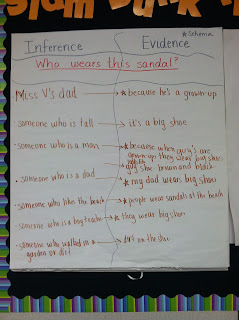 Slam Dunk
*Schema
Inference Evidence
Who wears this sandal?
Miss V's dad * because he's a grown up
· someone who is tall it's a big shoe
· someone who is a man * because when guy's are
grown up they wear big shoes
guy shoe brown and black
· someone who is a dad * my dad wears big shoes
· someone who like the beach * people wear sandals at the beach
· someone who is a boy teacher * they wear big shoes
· someone who walked in a dirt on the shoe
garden or dirt